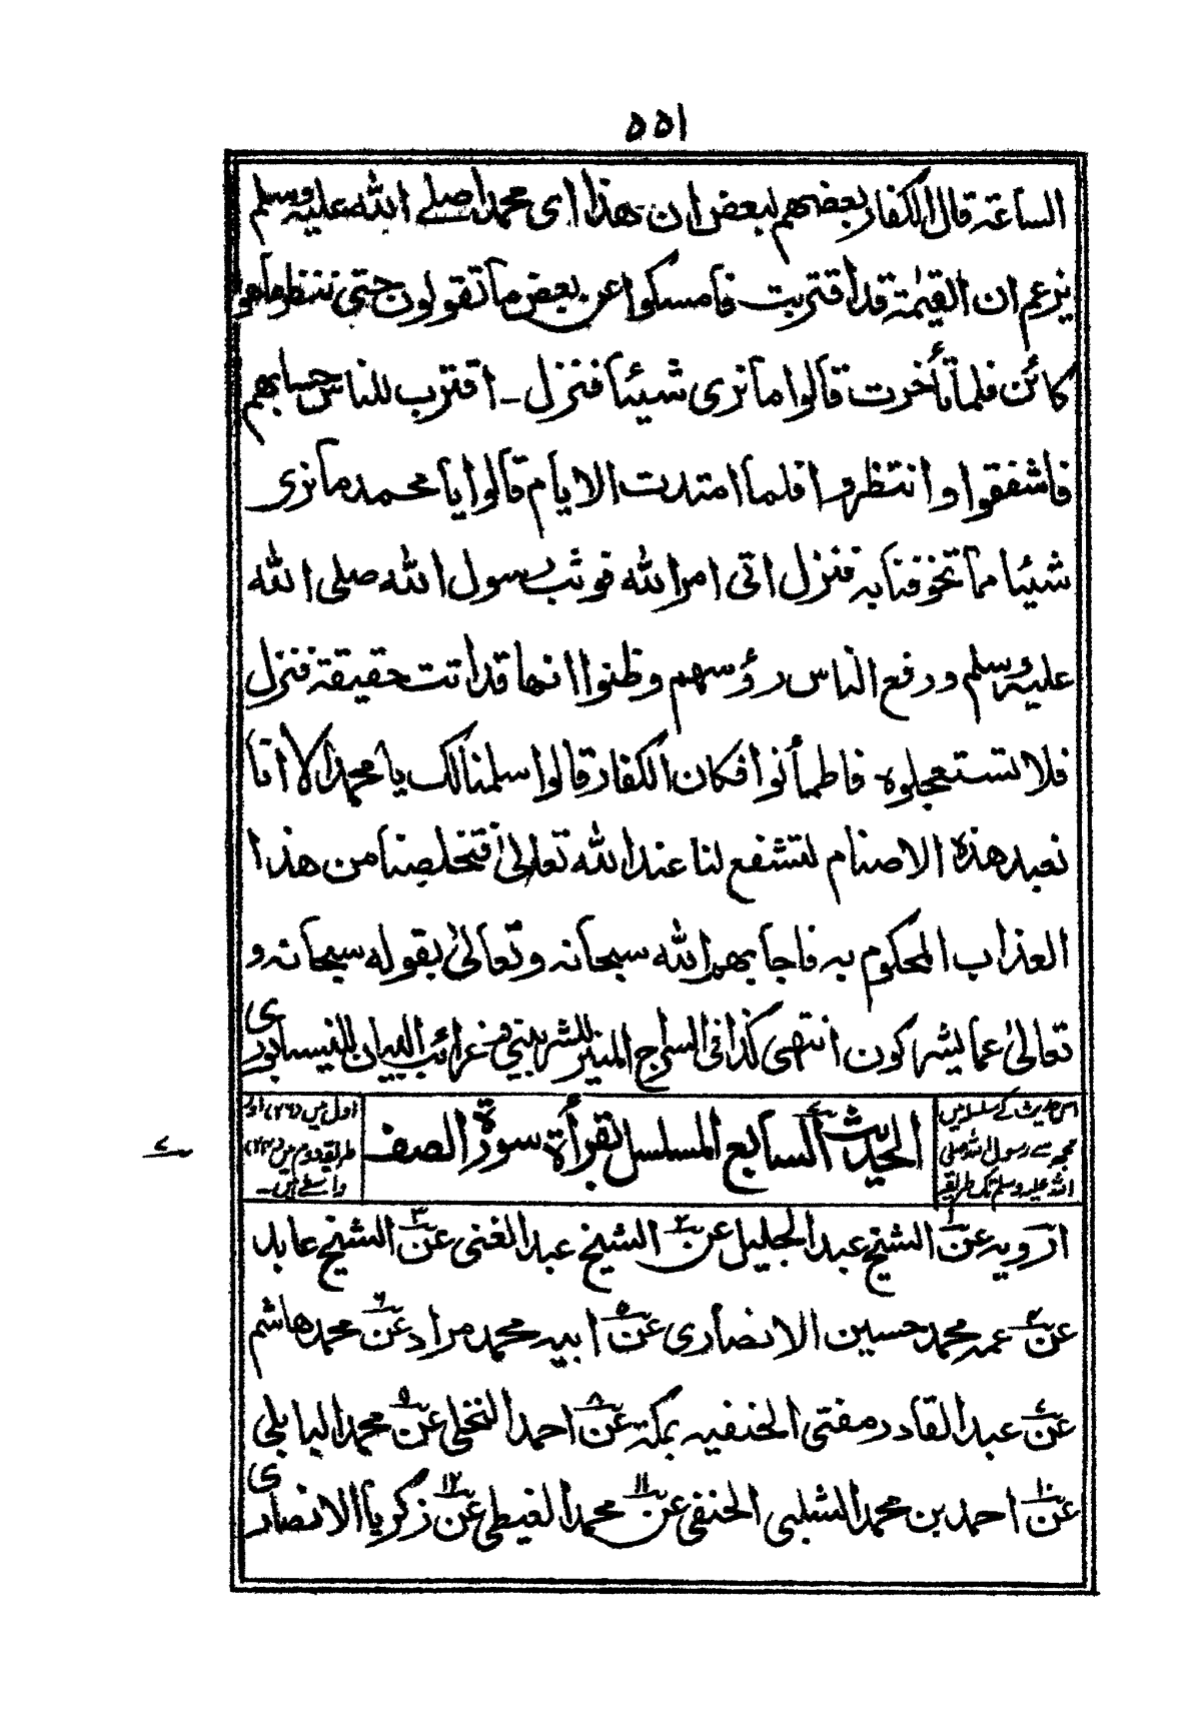 ۵۵۱
الساعة قال الكفار بعضهم لبعض ان هذا اى محمدا صلے الله عليه وسلم
يزعم ان القيٰمة قد اقتربت فامسكوا عن بعض ما تقولون حتى ننظر ما هو
كائن فلما تأخرت قالوا ما نرى شيئا فنزل ـ اقترب للناس حسابهم
فاشفقوا وانتظروا فلما امتدت الايام قالوا يا محمد ما نرى
شيئا مما تخوفنا به فنزل اتى امر الله فوثب رسول الله صلى الله
عليه وسلم ورفع الناس رؤسهم وظنوا انها قد اتت حقيقة فنزل
فلا تستعجلوه فاطمأنوا فكان الكفار قالوا سلمنا لك يا محمد الا انا
نعبد هذه الاصنام لتشفع لنا عند الله تعالىٰ فتخلصنا من هذا
العذاب المحكوم به فاجابهم الله سبحانه وتعالىٰ بقوله سبحانه و
تعالىٰ عما يشركون انتهى كذا فى السراج المنير للشربينى وغرائب البيان للنيسابورى
اس حدیث کے سلسلہ میں
مجھ سے رسول اللہ صلی
اللہ علیہ وسلم تک طریقہ
الحديث السابع المسلسل بقرأة سورة الصف
اول میں (۲۶) اور
طریقہ دوم میں (۲۳)
واسطے ہیں۔
۷
ارويه عن۱ الشيخ عبد الجليل عن۲ الشيخ عبد الغنى عن۳ الشيخ عابد
عن۴ عمه محمد حسين الانصارى عن۵ ابيه محمد مراد عن۶ محمد هاشم
عن۷ عبد القادر مفتى الحنفيه بمكة عن۸ احمد النخلى عن۹ محمد البابلى
عن۱۰ احمد بن محمد الشلبى الحنفى عن۱۱ محمد الغيطى عن۱۲ زكريا الانصارى